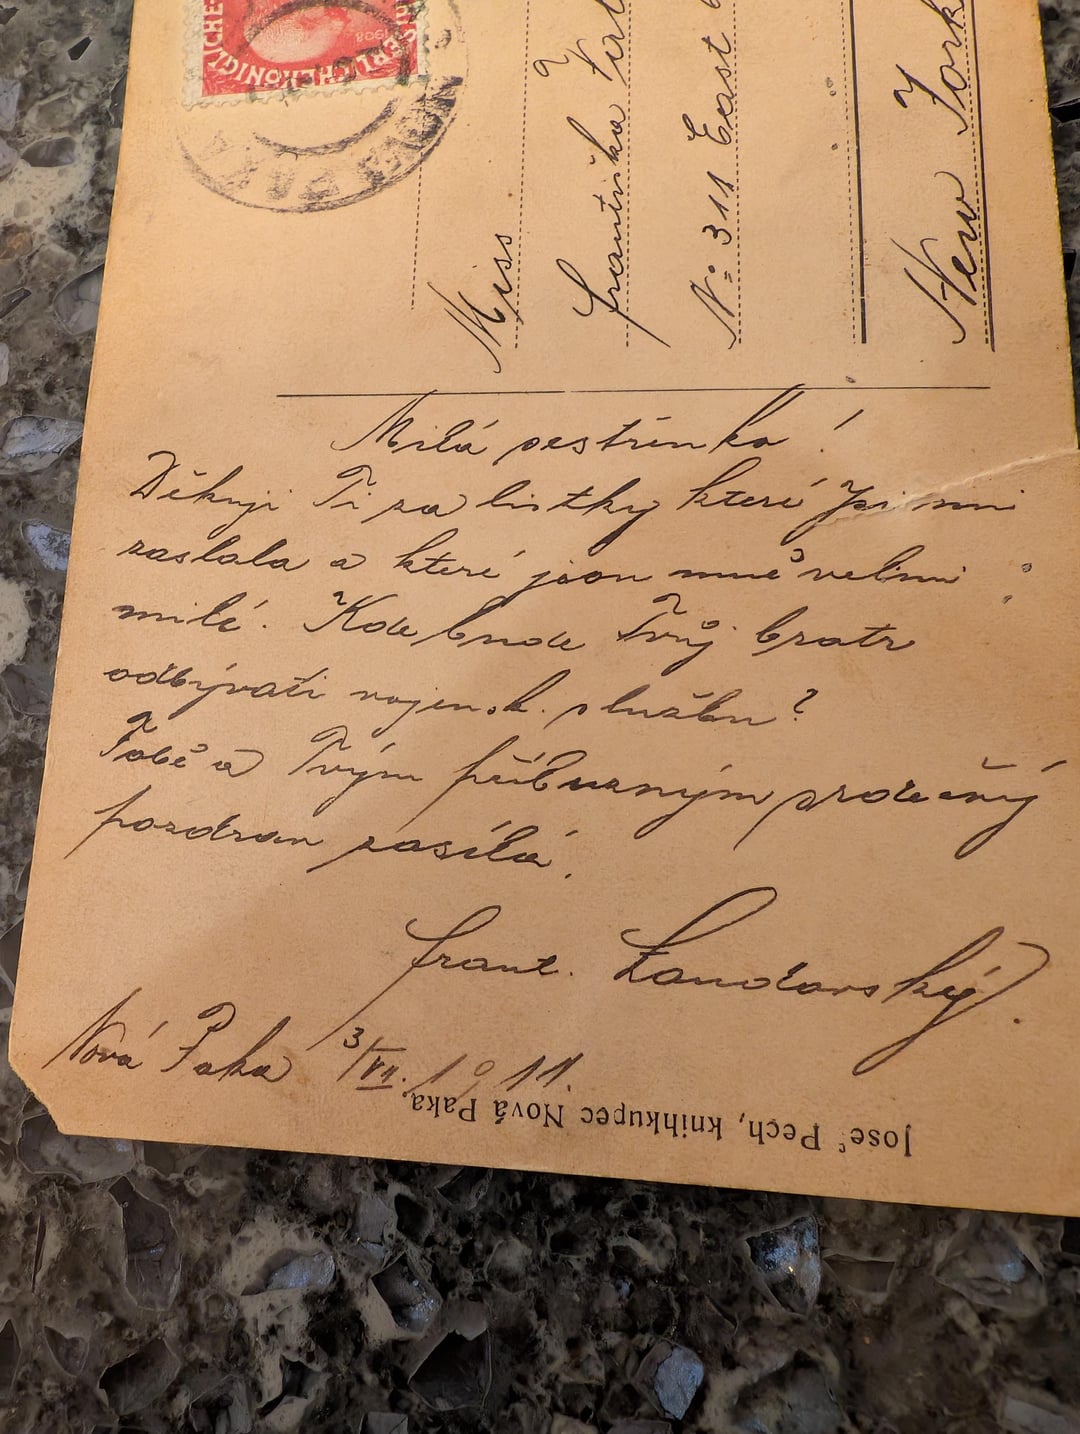 Milá sestřinko!
Děkuji Ti za lístky které jsi mi
zaslala a které jsou mně velmi
milé. Kde bude Tvůj bratr
odbývati vojensk. službu?
Tobě a Tvým příbuzným srdečný
pozdrav zasílá.
Frant. Landovský.
Nová Paka 3/VII. 1911.
Josef Pech, knihkupec Nová Paka.
Miss
Františka
No 311 East
New York
1908
PAKA